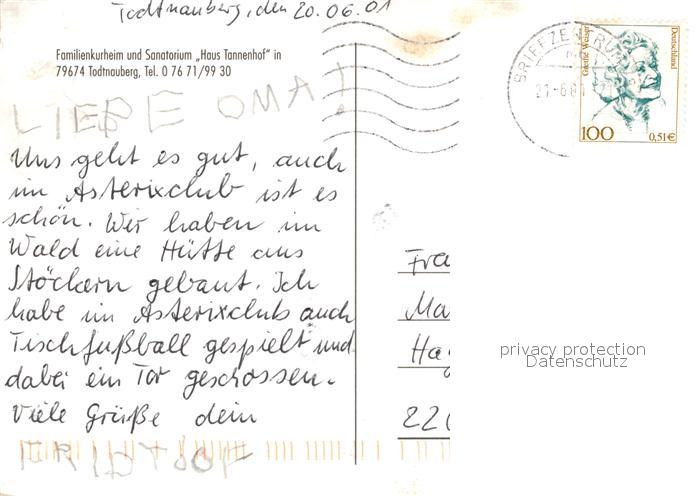 Todtnauberg, den 20.06.01
Familienkurheim und Sanatorium „Haus Tannenhof“ in
79674 Todtnauberg, Tel. 0 76 71/99 30
LIEBE OMA!
Uns geht es gut, auch
im Asterixclub ist es
schön. Wir haben im
Wald eine Hütte aus
Stöckern gebaut. Ich
habe im Asterixclub auch
Tischfußball gespielt und
dabei ein Tor geschossen.
Viele Grüße dein
FRIDTJOF
BRIEFZENTRUM
Grethe Weiser
Deutschland
100
0,51€
Fra
Ma
Ha
220
privacy protection
Datenschutz